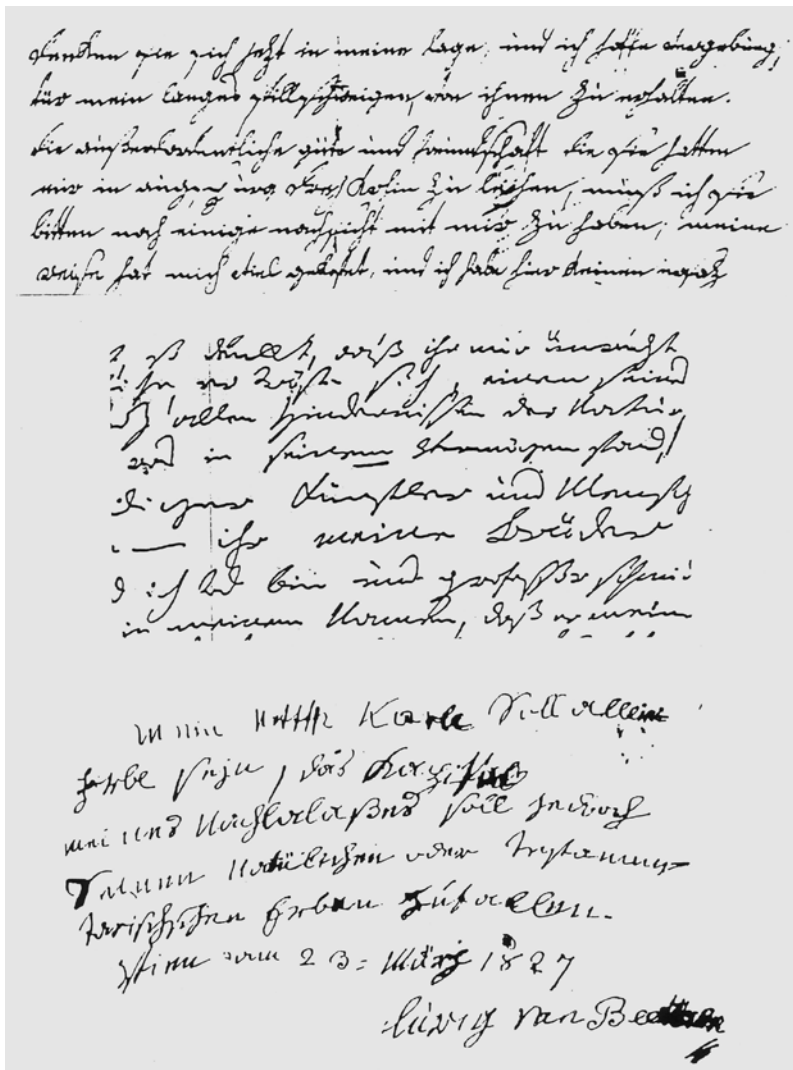 denken sie sich jezt in meine lage, und ich hoffe vergebung,
für mein langes stillschweigen, von ihnen zu erhalten.
die außerordentliche güte und freundschaft die sie hatten
mir in augspurg drei Karolin zu leihen, muß ich sie
bitten noch einige nachsicht mit mir zu haben; meine
reise hat mich viel gekostet, und ich habe hier keinen ersaz
daß ihr mir unrecht
sich, einen seines
allen Hindernissen der Natur,
in seinem Vermögen stand,
Künstler und Mensch
— ihr meine Brüder
ich Tod bin und professor schmi
in meinem Namen, daß er meine
Mein Neffe Karl Soll allein
Erbe seyn, das Kapital
meines Nachlalaßes soll jedoch
Seinen Natülichen oder testamen-
tarischschen Erben zufallen.
Wien am 23= März 1827
luwig van Beethoven